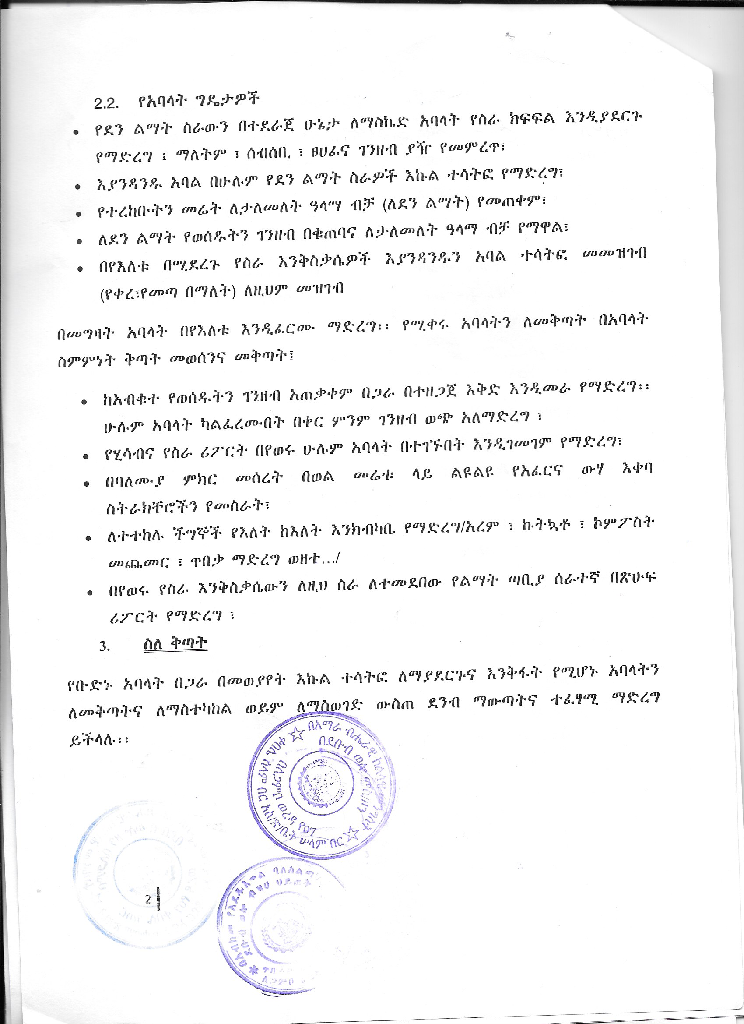 2.2. የአባላት ግዴታዎች
• የደን ልማት ስራውን በተደራጀ ሁኔታ ለማስኬድ አባላት የስራ ክፍፍል እንዲያደርጉ
የማድረግ ፤ ማለትም ፣ ሰብሳቢ ፣ ፀሀፊና ገንዘብ ያዥ የመምረጥ፣
• እያንዳንዱ አባል በሁሉም የደን ልማት ስራዎች እኩል ተሳትፎ የማድረግ፣
• የተረከቡትን መሬት ለታለመለት ዓላማ ብቻ (ለደን ልማት) የመጠቀም፣
• ለደን ልማት የወሰዱትን ገንዘብ በቁጠባና ለታለመለት ዓላማ ብቻ የማዋል፣
• በየእለቱ በሚደረጉ የስራ እንቅስቃሴዎች እያንዳንዱን አባል ተሳትፎ መመዝገብ
(የቀረ፣የመጣ በማለት) ለዚህም መዝገብ
በመግዛት አባላት በየእለቱ እንዲፈርሙ ማድረግ፡፡ የሚቀሩ አባላትን ለመቅጣት በአባላት
ስምምነት ቅጣት መወሰንና መቅጣት፣
• ከአብቁተ የወሰዱትን ገንዘብ አጠቃቀም በጋራ በተዘጋጀ እቅድ እንዲመራ የማድረግ፡፡
ሁሉም አባላት ካልፈረሙበት በቀር ምንም ገንዘብ ወጭ አለማድረግ ፣
• የሂሳብና የስራ ሪፖርት በየወሩ ሁሉም አባላት በተገኙበት እንዲገመገም የማድረግ፣
• በባለሙያ ምክር መሰረት በወል መሬቱ ላይ ልዩልዩ የአፈርና ውሃ እቀባ
ስትራክቸሮችን የመስራት፣
• ለተተከሉ ችግኞች የእለት ከእለት እንክብካቤ የማድረግ/አረም ፣ ኩትኳቶ ፣ ኮምፖስት
መጨመር ፣ ጥበቃ ማድረግ ወዘተ.../
• በየወሩ የስራ እንቅስቃሴውን ለዚህ ስራ ለተመደበው የልማት ጣቢያ ሰራተኛ በጽሁፍ
ሪፖርት የማድረግ ፣
3. ስለ ቅጣት
የቡድኑ አባላት በጋራ በመወያየት እኩል ተሳትፎ ለማያደርጉና እንቅፋት የሚሆኑ አባላትን
ለመቅጣትና ለማስተካከል ወይም ለማስወገድ ውስጠ ደንብ ማውጣትና ተፈፃሚ ማድረግ
ይችላሉ፡፡
2